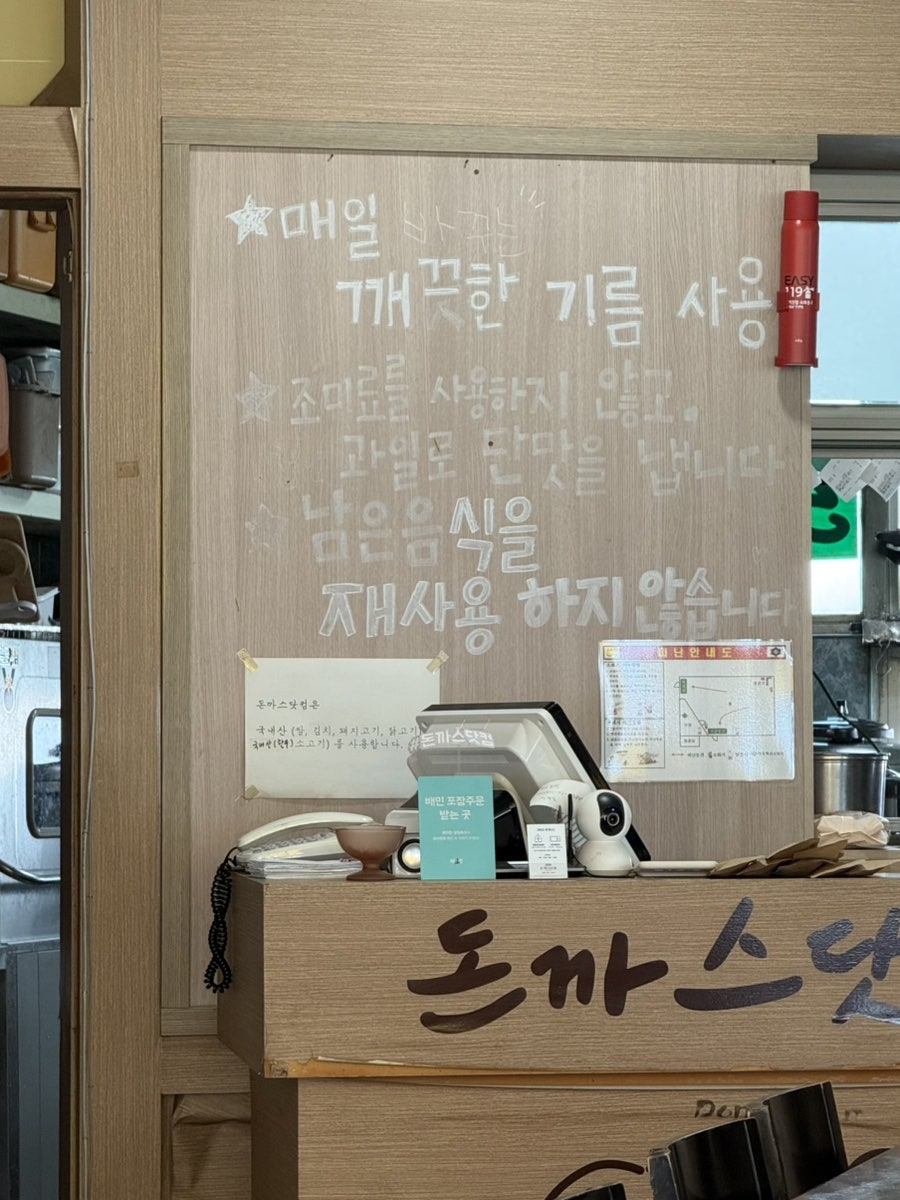 매일 바꾸는
깨끗한 기름 사용
조미료를 사용하지 않고,
과일로 단맛을 냅니다
남은음식을
재사용 하지 않습니다
EASY
119
피난안내도
돈까스닷컴은
국내산 (쌀, 김치, 돼지고기, 닭고기
소고기) 를 사용합니다.
돈까스닷컴
배민 포장주문
받는 곳
돈까스닷
Don